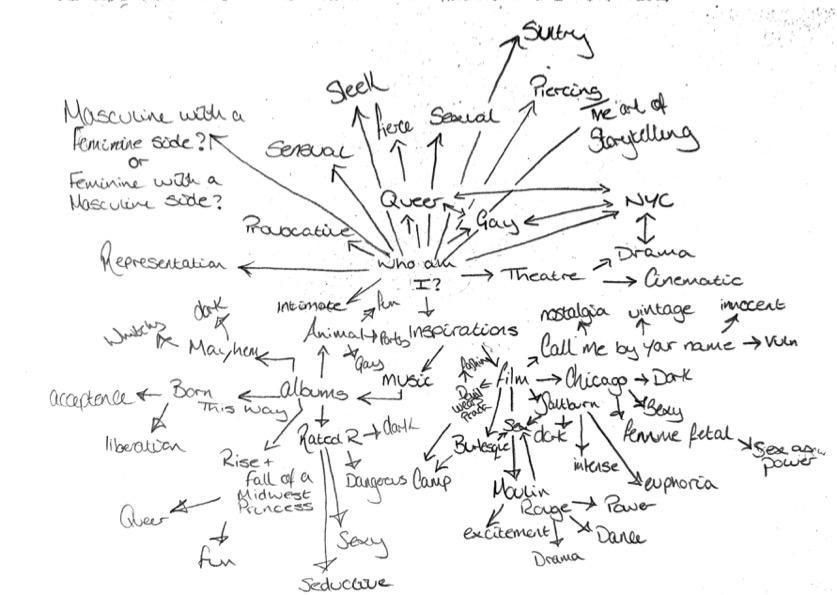 Sultry
Sleek
Piercing
Masculine with a
Feminine side?
or
Feminine with a
Masculine side?
fierce
Sexual
The art of
Storytelling
Sensual
Queer
NYC
Provocative
Gay
Representation
Who am
I?
Theatre
Drama
Cinematic
Intimate
fun
dark
Animal
Party
Inspirations
nostalgia
vintage
innocent
Mayhem
Gay
Call me by your name
Vuln
acceptence
Born
This way
albums
Music
fashion
film
Chicago
Dark
Devil
wears
Prada
Saltburn
Sexy
liberation
Rated R
dark
Sex
dark
femme fetal
Burlesque
Sex as
power
Rise +
fall of a
Midwest
Princess
Dangerous
Camp
intense
euphoria
Queer
Moulin
Rouge
Power
fun
Sexy
excitement
Dance
Drama
Seductive